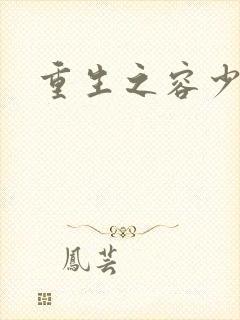 重生之容少
鳳芸